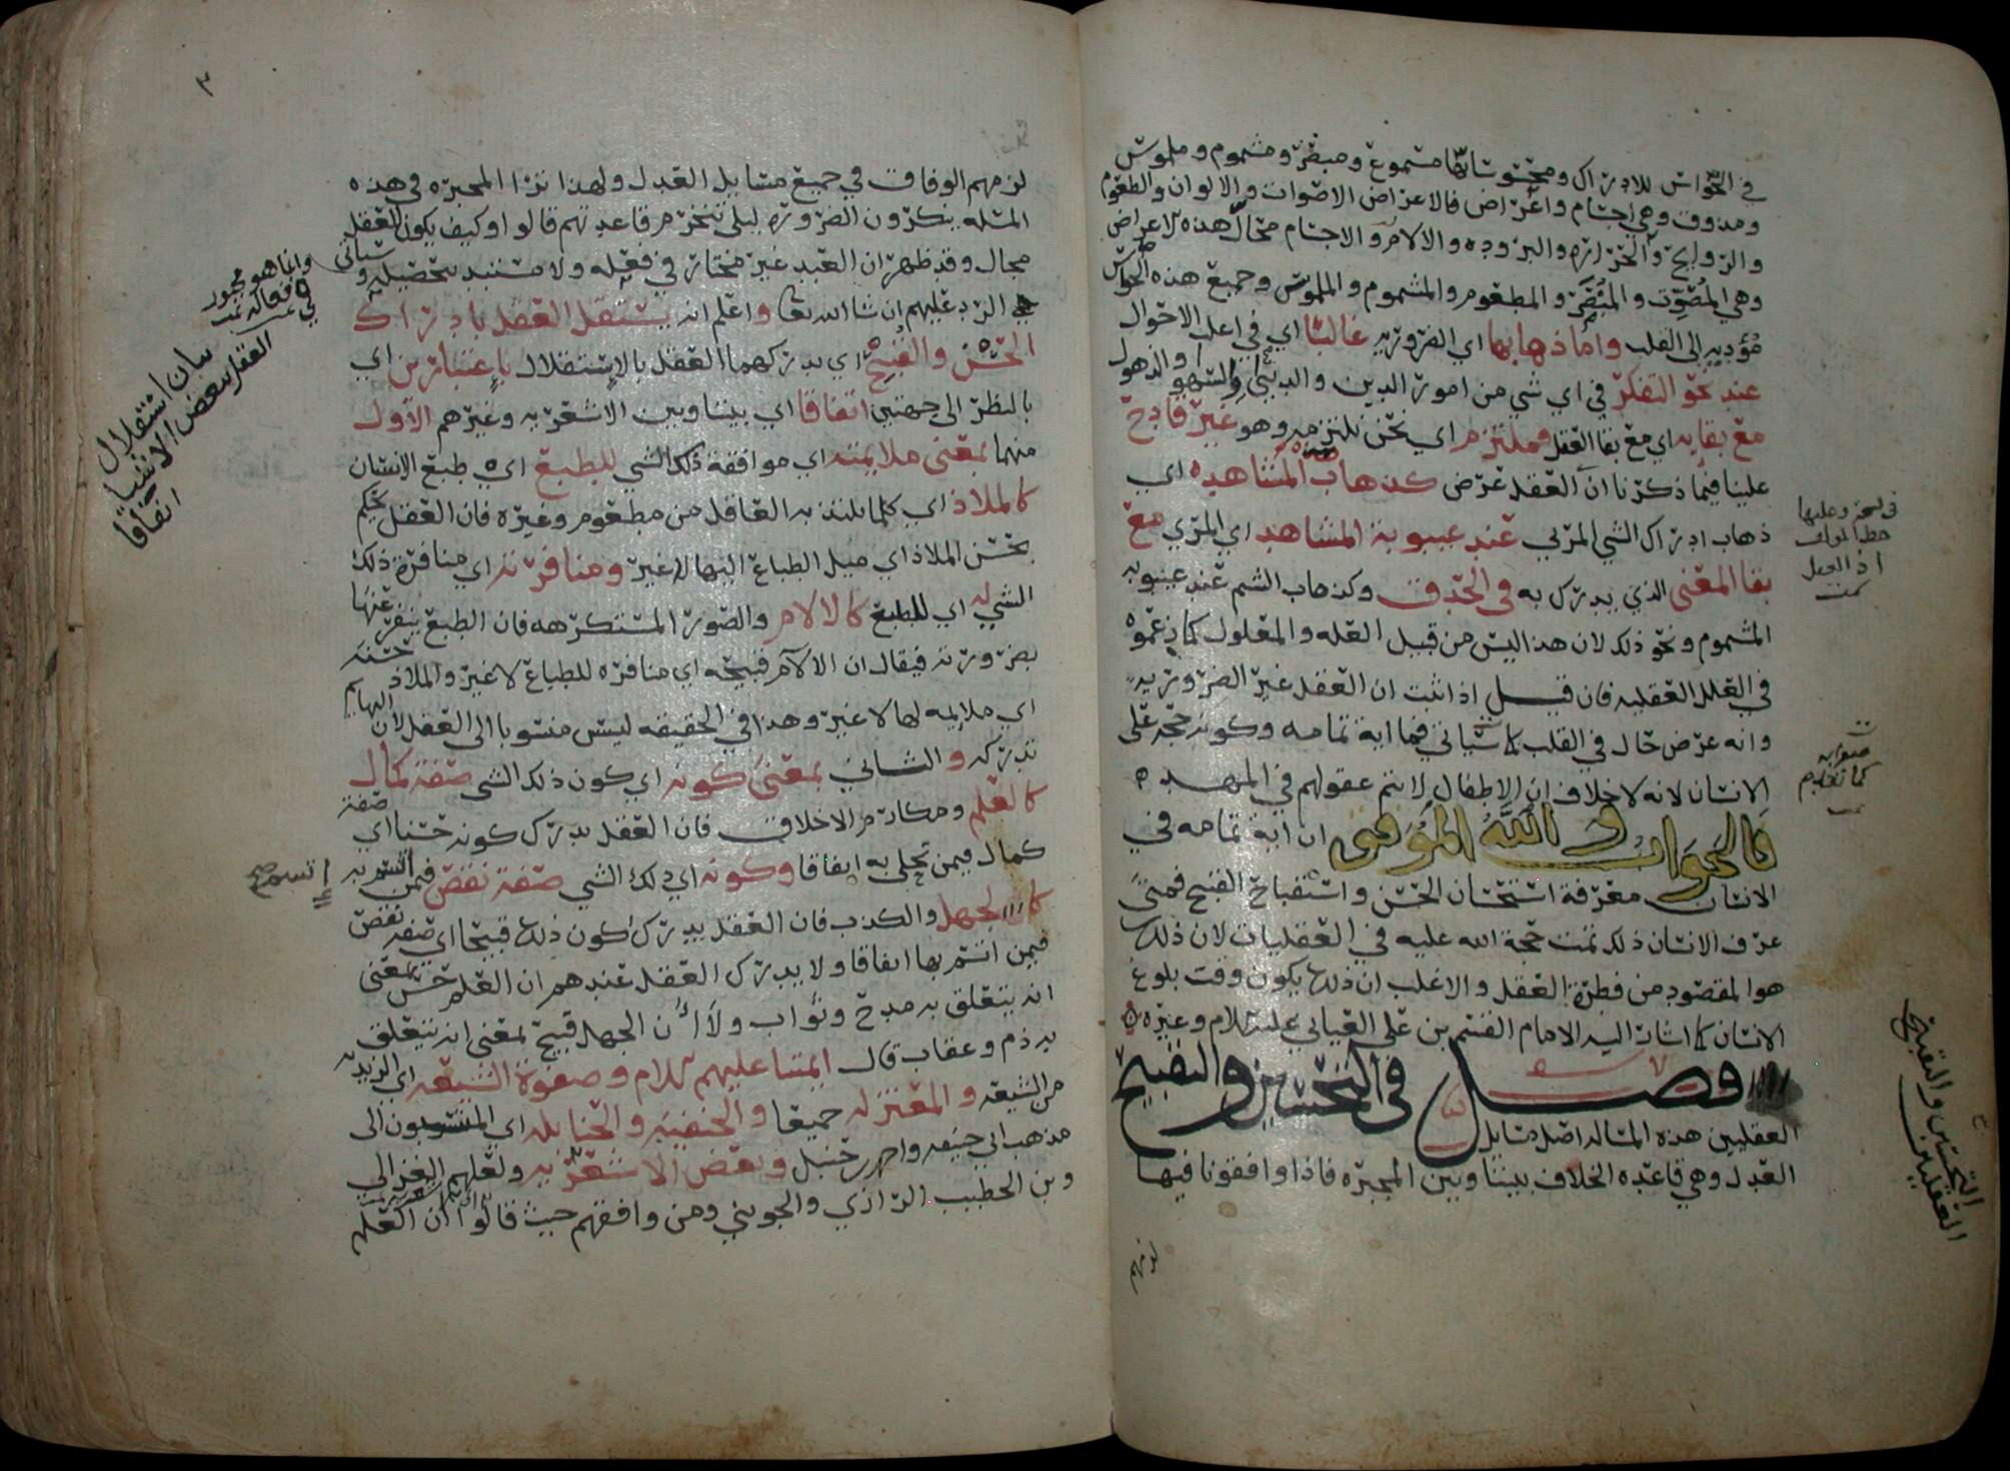 في الحواس للادراك ومحسوساتها مسموع ومبصر ومشموم وملموس
ومذوق وهي اجسام واعراض فالاعراض الاصوات والالوان والطعوم
والروايح والحراره والبروده والالام والاجسام محال هذه الاعراض
وهي المصوت والمبصر والمطعوم والمشموم والملموس وجميع هذه الحواس
مؤديه الى القلب واما ذهابها اي الضروريه غالبا اي في اعلب الاحوال
عند نحو التفكر في اي شي من امور الدين والدنيا والسهو والذهول
مع بقايه اي مع بقا العقل فملتزم اي نحن نلتزمه وهو غير قادح
علينا فيما ذكرنا ان العقل عرض كذهاب المشاهده اي
ذهاب ادراك الشي المرئي عند غيبوبة المشاهد اي المرئي مع
بقا المعنى الذي يدرك به في الحدق وكذهاب الشم عند غيبوبه
المشموم ونحو ذلك لان هذا ليس من قبيل العله والمعلول كما زعموه
في العلل العقليه فان قيل اذا ثبت ان العقل غير الضروريه
وانه عرض حال في القلب كما سياتي فما اية تمامه وكونه حجه على
الانسان لانه لا خلاف ان الاطفال لا تتم عقولهم في المهد
فالجواب والله الموفق ان اية تمامه في
الانسان معرفة استحسان الحسن واستقباح القبيح فمتى
عرف الانسان ذلك تمت حجة الله عليه في العقليات لان ذلك
هو المقصود من فطرة العقل والاغلب ان ذلك يكون وقت بلوغ
الانسان كما اشار اليه الامام القسم بن علي العياني عليه السلام وغيره
فصل في التحسين والتقبيح
العقليين هذه المساله اصل مسايل
العدل وهي قاعده الخلاف بيننا وبين المجبره فاذا وافقونا فيها
لزمهم
في نسخه وعليها
خط المولف
اذ العقل
تمت
صوابه
كما تقدم
التحسين والتقبيح
العقليين
٣
لزمهم الوفاق في جميع مسايل العدل ولهذا ترا المجبره في هذه
المسله ينكرون الضروره ليلى تنخرم قاعدتهم قالوا وكيف يكون للعقل
مجال وقد ظهر ان العبد غير مختار في فعله ولا مستبد بتحصيله وسياتي
الرد عليهم ان شا الله تعا واعلم انه يستقل العقل بادراك
الحسن والقبيح اي يدركهما العقل بالاستقلال باعتبارين اي
بالنظر الى جهتين اتفاقا اي بيننا وبين الاشعريه وغيرهم الاول
منهما بمعنى ملايمته اي موافقة ذلك الشي للطبع اي طبع الانسان
كالملاذ اي كلما يلتذ به العاقل من مطعوم وغيره فان العقل يحكم
بحسن الملاذ اي ميل الطباع اليها لا غير ومنافرته اي منافرة ذلك
الشي له اي للطبع كالالام والصور المستكرهه فان الطبع ينفر عنها
بضرورته فيقال ان الالام قبيحه اي منافره للطباع لا غير والملاذ حسنه
اي ملايمه لها لا غير وهذا في الحقيقه ليس منسوبا الى العقل لان البهايم
تدركه والثاني بمعنى كونه اي كون ذلك الشي صفة كمال
كالعلم ومكارم الاخلاق فان العقل يدرك كونه حسنا اي صفة
كمال فيمن تحلى به اتفاقا وكونه اي ذلك الشي صفة نقص فيمن اتسم به
كالجهل والكذب فان العقل يدرك كون ذلك قبيحا اي صفه نقص
فيمن اتسم بها اتفاقا ولا يدرك العقل عندهم ان العلم حسن بمعنى
انه يتعلق به مدح وثواب ولا ان الجهل قبيح بمعنى انه يتعلق
به ذم وعقاب قال ايمتنا عليهم السلام وصفوة الشيعه اي الزيديه
من الشيعه والمعتزله جميعا والحنفيه والحنابله اي المنسوبون الى
مذهب ابي حنيفه واحمد بن حنبل وبعض الاشعريه ولعلهم الغزالي
وبن الخطيب الرازي والجويني ومن وافقهم حيث قالوا ان العله
وانما هو مجبور
في افعاله تمت
بيان استقلال
العقل ببعض الاشيا
اتفاقا
اتسم صح